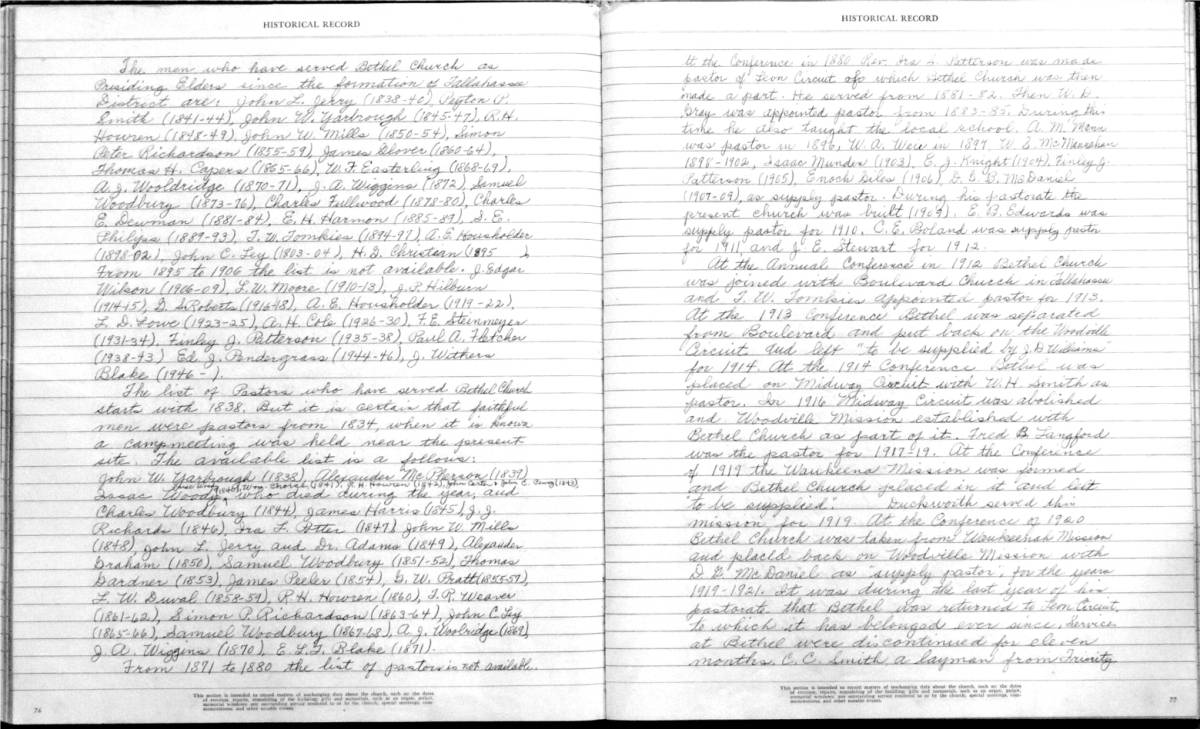 HISTORICAL RECORD
The men who have served Bethel Church as
Presiding Elders since the formation of Tallahassee
District are: John L. Jerry (1838-40), Peyton P.
Smith (1841-44), John W. Yarbrough (1845-47), R.H.
Howren (1848-49), John W. Mills (1850-54), Simon
Peter Richardson (1855-59), James Glover (1860-64),
Thomas H. Capers (1865-66), W.F. Easterling (1868-69),
A. J. Wooldridge (1870-71), J. A. Wiggens (1872), Samuel
Woodbury (1873-76), Charles Fullwood (1878-80), Charles
E. Dewman (1881-84), E. H. Harmon (1885-89), S. E.
Philips (1889-93), T. W. Tomkies (1894-97), A. E. Housholder
(1898-02), John C. Ley (1803-04), H. D. Christern (1895 ).
From 1895 to 1906 the list is not available. J. Edgar
Wilson (1906-09), L.W. Moore (1910-13), J. P. Hilburn
(1914-15), Roberts (1916-18), A. E. Housholder (1919-22),
L. D. Lowe (1923-25), A. H. Cole (1926-30), F. E. Steinmeyer
(1931-34), Finley J. Patterson (1935-38), Paul A. Fletcher
(1938-43) Ed J. Pendergrass (1944-46), J. Withers
Blake (1946- ).
The list of Pastors who have served Bethel Church
starts with 1838. But it is certain that faithful
men were pastors from 1834, when it is known
a campmetting was held near the present
site. The available list is a follows:
John W. Yarbrough (1838), Alexander McPherson (1839)
(1840), Wm. Choice (1841), R. H. Howren (1842), John C. (1843)
Isaac Woody, who died during the year, and
Charles Woodbury (1844), James Harris (1845), J. J.
Richards (1846), Ira L. Potter (1847) John W. Mills
(1848), John L. Jerry and Dr. Adams (1849), Alexander
Graham (1850), Samuel Woodbury (1851-52), Thomas
Gardner (1853), James Peeler (1854), G. W. Pratt (1855-57),
L. W. Duval (1858-59), R. H. Howren (1860), T. R. Weaver
(1861-62), Simon P. Richardson (1863-64), John C. Ley
(1865-66), Samuel Woodbury (1867-68), A. J. Woolridge (1869),
J. A. Wiggens (1870), E. L. T. Blake (1871).
From 1871 to 1880 the list of pastors is not available.
This section is intended to record matters of unchanging duty about the church, such as: the dates
of erection, repairs, remodeling of the building; gifts and memorials, such as an organ, pulpit,
memorial windows; any outstanding service rendered to or by the church, special meetings, com-
memorations, and other notable events.
76
HISTORICAL RECORD
At the Conference in 1880 Rev. Ira S. Patterson was made
pastor of Leon Circuit of which Bethel Church was then
made a part. He served from 1881-82. Then W. D.
Gray was appointed pastor from 1883-85. During this
time he also taught the local school. A. M. Mann
was pastor in 1896, W. A. Were in 1897. W. E. McManahan
1898-1902, Isaac Munden (1903), E. J. Knight (1904), Finley J.
Patterson (1905), Enoch Giles (1906), D. B. McDaniel
(1907-09), as supply pastor. During his pastorate the
present church was built (1909). E. B. Edwards was
supply pastor for 1910. C. E. Boland was supply pastor
for 1911 and J. E. Stewart for 1912.
At the Annual Conference in 1912 Bethel Church
was joined with Boulevard Church in Tallahassee
and T. W. Tomkies appointed pastor for 1913.
At the 1913 Conference Bethel was separated
from Boulevard and put back on the Woodville
Circuit and left "to be supplied by J. D. Williams"
for 1914. At the 1914 Conference Bethel was
placed on Midway Circuit with W. H. Smith as
pastor. In 1916 Midway Circuit was abolished
and Woodville Mission established with
Bethel Church as part of it. Fred B. Langford
was the pastor for 1917-19. At the Conference
of 1919 the Waukeena Mission was formed
and Bethel Church placed in it and left
"to be supplied". Duckworth served this
mission for 1919. At the Conference of 1920
Bethel Church was taken from Waukeenah Mission
and placed back on Woodville Mission with
D. B. McDaniel as "supply pastor", for the years
1919-1921. It was during the last year of his
pastorate that Bethel was returned to Leon Circuit,
to which it has belonged ever since. Services
at Bethel were discontinued for eleven
months. C. C. Smith a layman from Trinity
This section is intended to record matters of unchanging duty about the church, such as: the dates
of erection, repairs, remodeling of the building; gifts and memorials, such as an organ, pulpit,
memorial windows; any outstanding service rendered to or by the church, special meetings, com-
memorations, and other notable events.
77